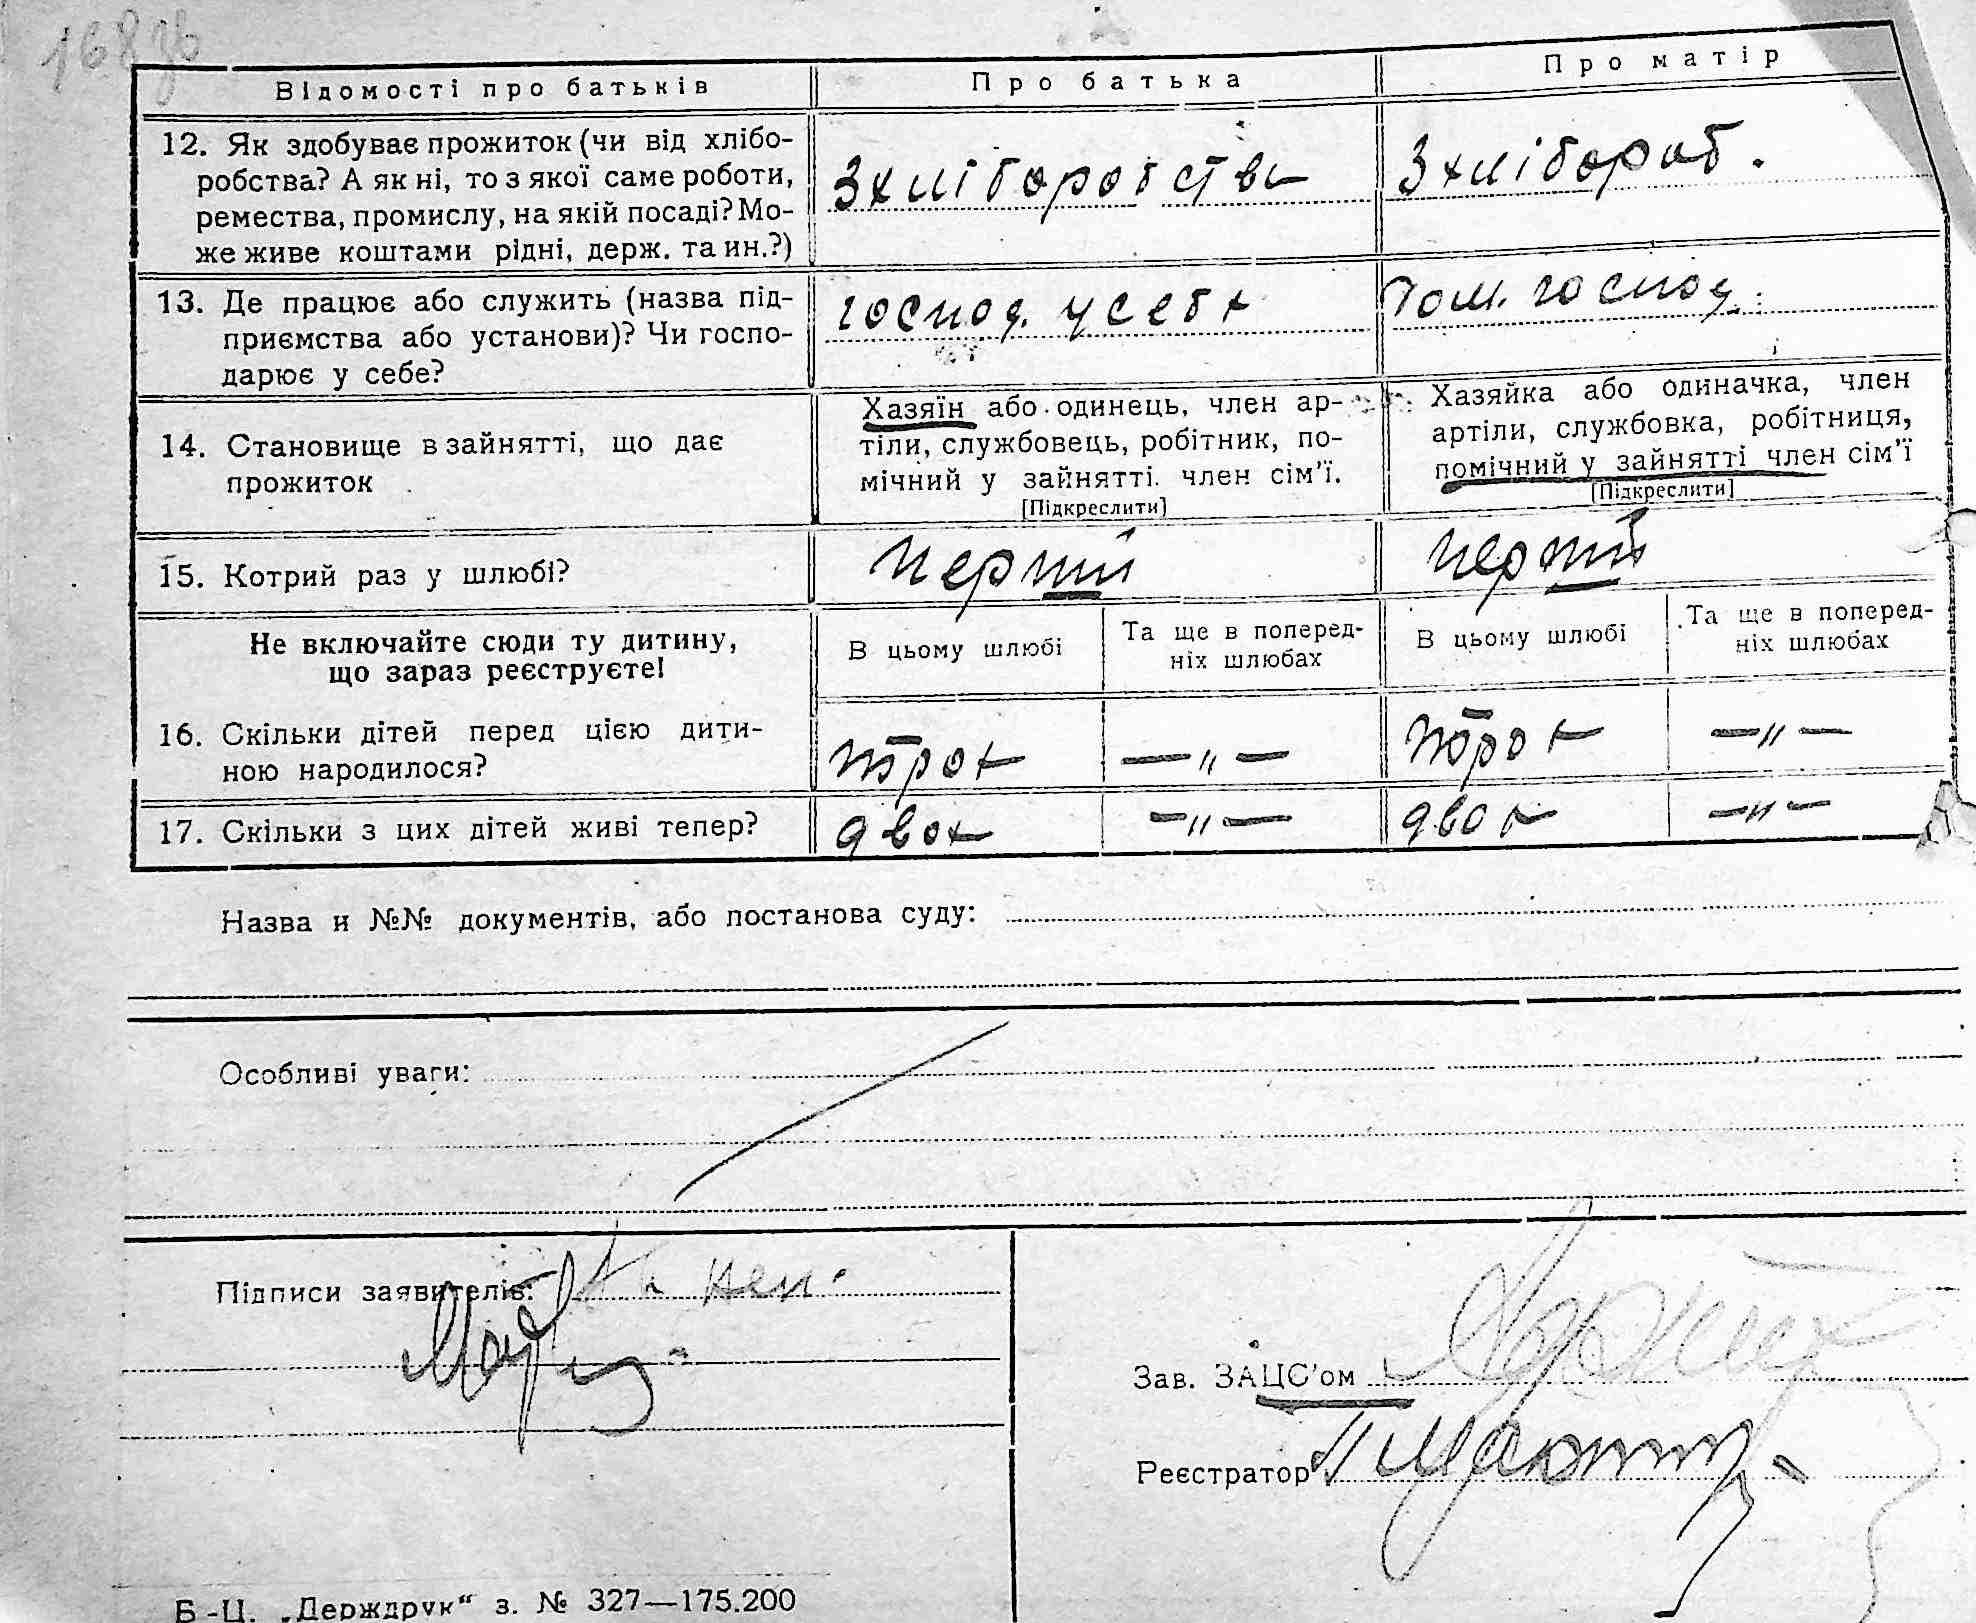 168 зв
Відомості про батьків
Про батька
Про матір
12. Як здобуває прожиток (чи від хлібо-
робства? А як ні, то з якої саме роботи,
ремества, промислу, на якій посаді? Мо-
же живе коштами рідні, держ. та ин.?)
З хліборобства
З хлібороб.
13. Де працює або служить (назва під-
приємства або установи)? Чи госпо-
дарює у себе?
господ. у себе
Дом. господ.
14. Становище в зайнятті, що дає
прожиток
Хазяїн або одинець, член ар-
тіли, службовець, робітник, по-
мічний у зайнятті член сім'ї.
[Підкреслити]
Хазяйка або одиначка, член
артіли, службовка, робітниця,
помічний у зайнятті член сім'ї
[Підкреслити]
15. Котрий раз у шлюбі?
перший
перший
Не включайте сюди ту дитину,
що зараз реєструєте!
В цьому шлюбі
Та ще в поперед-
ніх шлюбах
В цьому шлюбі
Та ще в поперед-
ніх шлюбах
16. Скільки дітей перед цією дити-
ною народилося?
трох
— „ —
трох
— „ —
17. Скільки з цих дітей живі тепер?
двох
— „ —
двох
— „ —
Назва и №№ документів, або постанова суду:
Особливі уваги:
Підписи заявителів:
Зав. ЗАЦС'ом
Реєстратор
Б-Ц. „Держдрук“ з. № 327—175.200